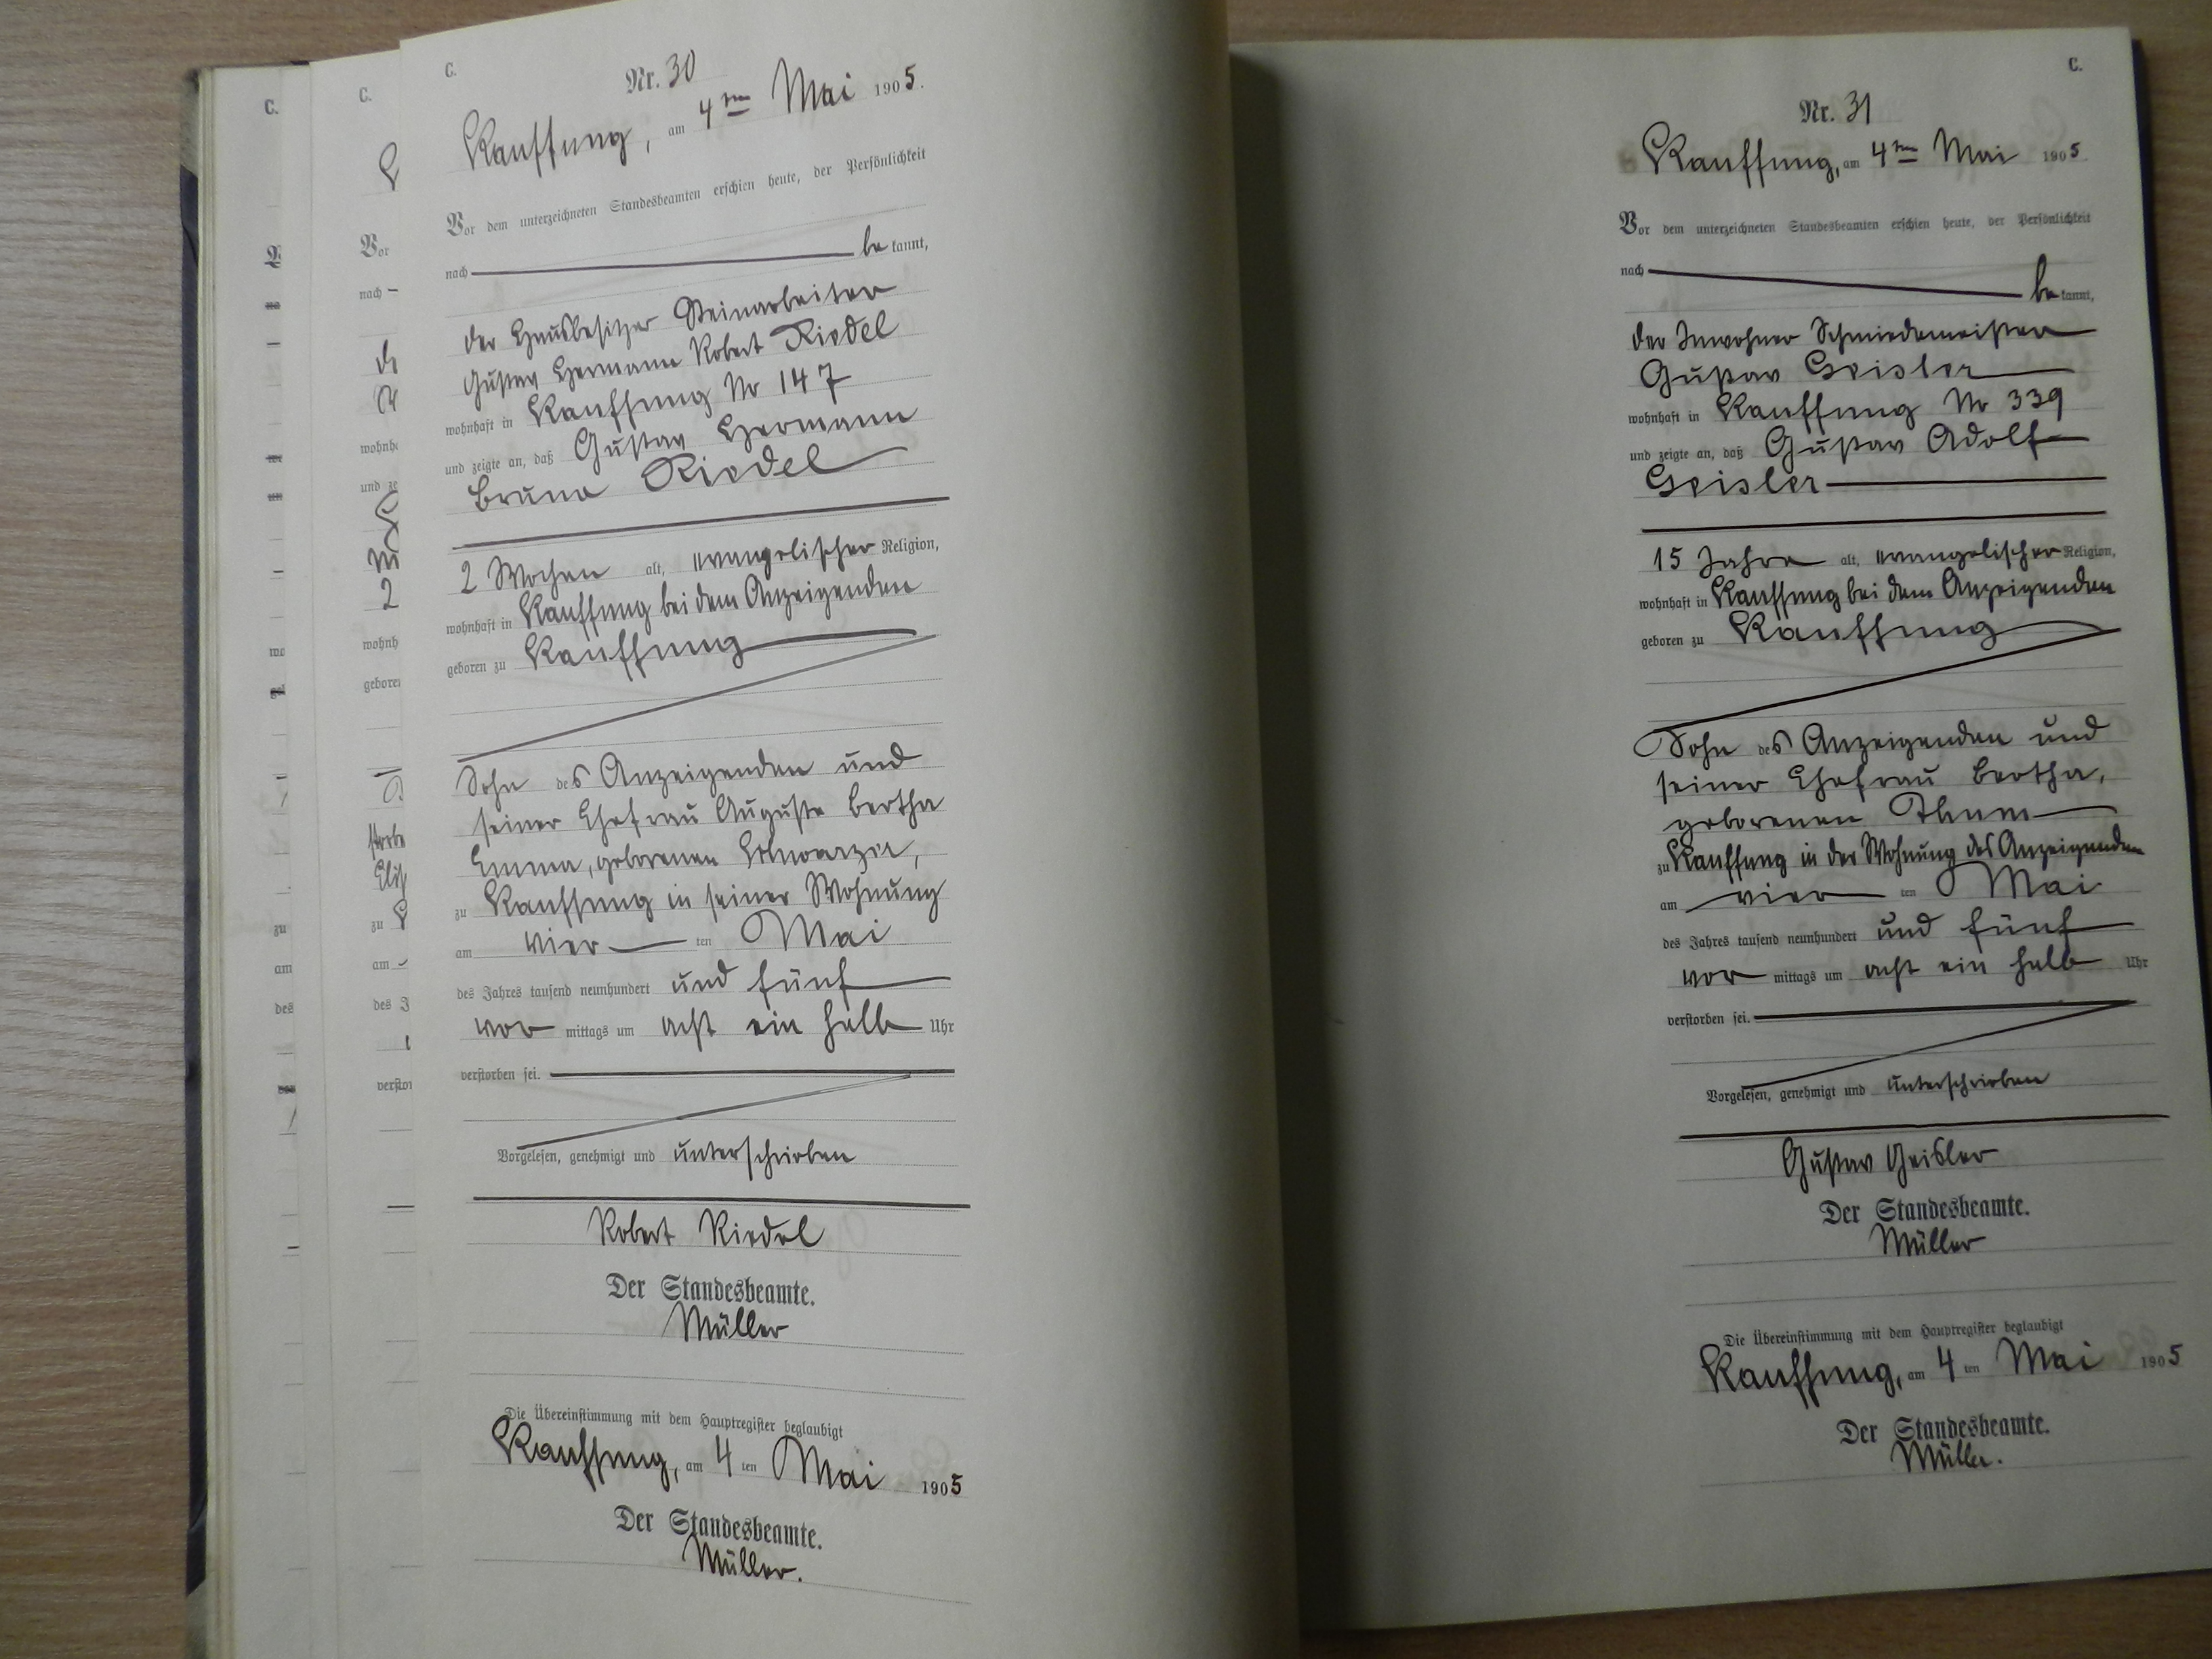 C.
Nr. 30
Kauffung, am 4ten Mai 1905.
Vor dem unterzeichneten Standesbeamten erschien heute, der Persönlichkeit
nach be kannt,
der Hausbesitzer Steinarbeiter
Gustav Hermann Robert Riedel
wohnhaft in Kauffung No 147
und zeigte an, daß Gustav Hermann
Bruno Riedel
2 Wochen alt, evangelischer Religion,
wohnhaft in Kauffung bei dem Anzeigenden
geboren zu Kauffung
Sohn des Anzeigenden und
seiner Ehefrau Auguste Bertha
Emma, geborenen
zu Kauffung in seiner Wohnung
am vier ten Mai
des Jahres tausend neunhundert und fünf
vor mittags um acht ein halb Uhr
verstorben sei.
Vorgelesen, genehmigt und unterschrieben
Robert Riedel
Der Standesbeamte.
Müller
Die Übereinstimmung mit dem Hauptregister beglaubigt
Kauffung, am 4 ten Mai 1905
Der Standesbeamte.
Müller.
C.
Nr. 31
Kauffung, am 4ten Mai 1905.
Vor dem unterzeichneten Standesbeamten erschien heute, der Persönlichkeit
nach be kannt,
der Inwohner Schmiedemeister
Gustav Geisler
wohnhaft in Kauffung No 339
und zeigte an, daß Gustav Adolf
Geisler
15 Jahre alt, evangelischer Religion,
wohnhaft in Kauffung bei dem Anzeigenden
geboren zu Kauffung
Sohn des Anzeigenden und
seiner Ehefrau Bertha,
geborenen Thum
zu Kauffung in der Wohnung des Anzeigenden
am vier ten Mai
des Jahres tausend neunhundert und fünf
vor mittags um acht ein halb Uhr
verstorben sei.
Vorgelesen, genehmigt und unterschrieben
Gustav Geisler
Der Standesbeamte.
Müller
Die Übereinstimmung mit dem Hauptregister beglaubigt
Kauffung, am 4 ten Mai 1905
Der Standesbeamte.
Müller.